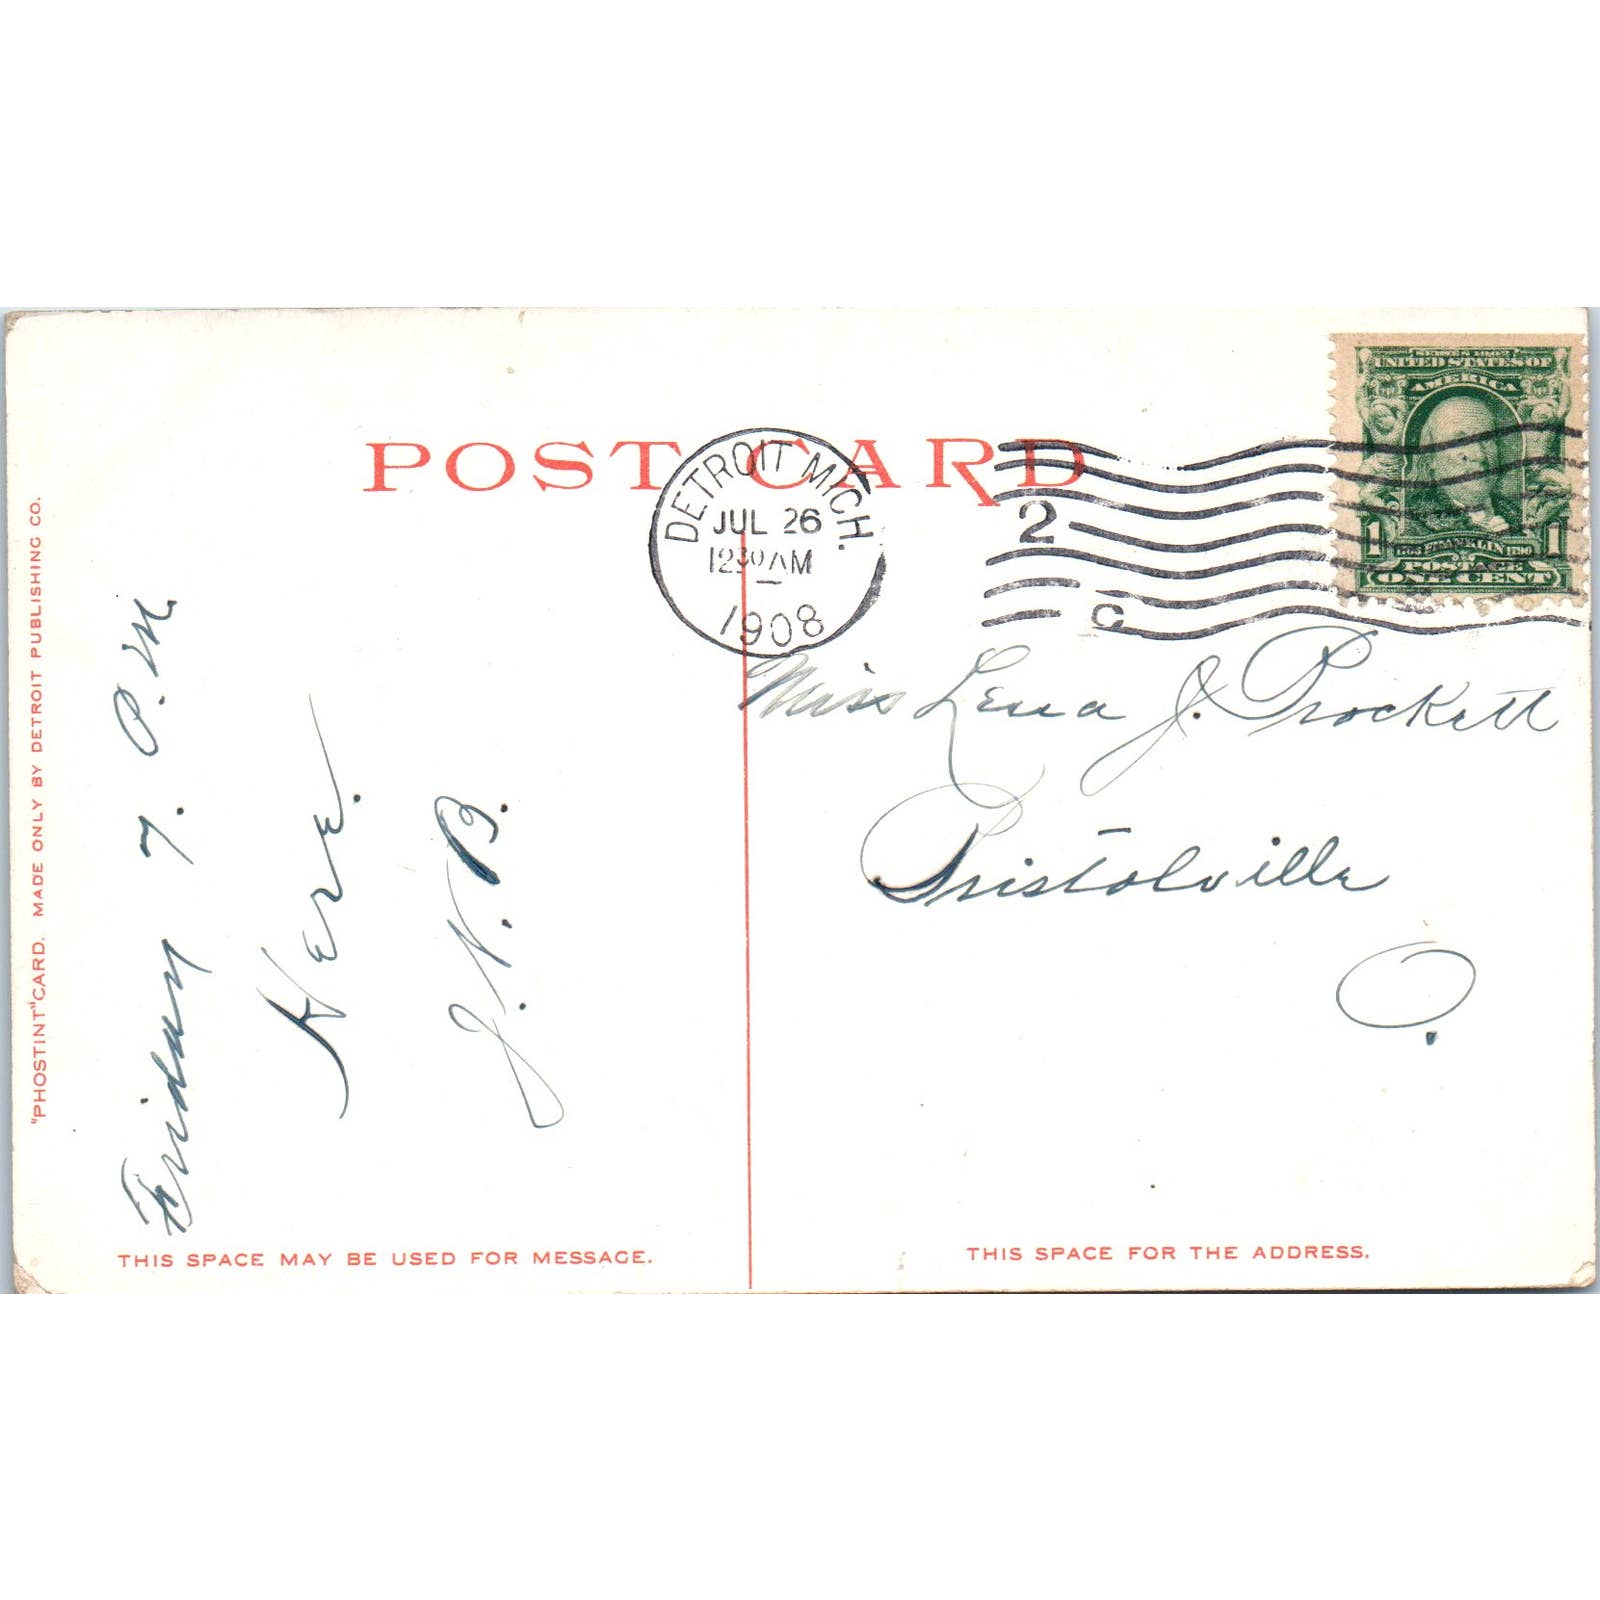 POST CARD
DETROIT MICH.
JUL 26
1230 AM
1908
2
C
SERIES 1902
UNITED STATES OF
AMERICA
1 1706 FRANKLIN 1790 1
POSTAGE
ONE CENT
"PHOSTINT" CARD. MADE ONLY BY DETROIT PUBLISHING CO.
Friday 7. P.M
Here.
J. N. B.
Miss Lena J. Prockett
Bristolville
O.
THIS SPACE MAY BE USED FOR MESSAGE.
THIS SPACE FOR THE ADDRESS.